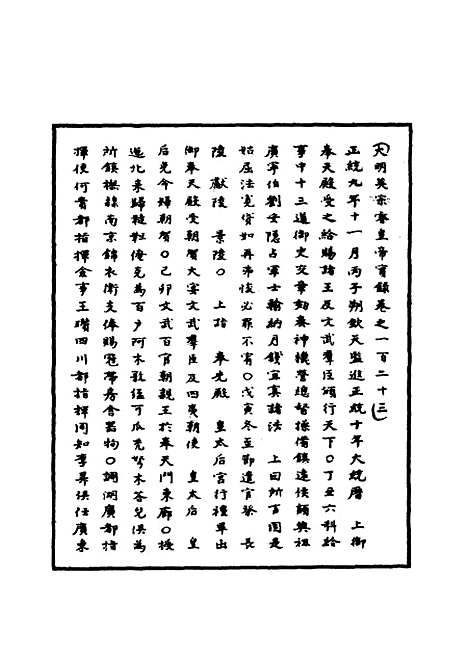 大明英宗睿皇帝實錄卷之一百二十三
正統九年十一月丙子朔欽天監進正統十年大統曆　上御
奉天殿受之給賜諸王及文武羣臣頒行天下○丁丑六科給
事中十三道御史交章劾奏神機營總督操備鎮遠侯顧興祖
廣寧伯劉安隱占軍士輸納月錢宜寘諸法　上曰所言固是
姑屈法寬貸如再弗悛必罪不宥○戊寅冬至節遣官祭　長
陵　獻陵　景陵○　上詣　奉先殿　皇太后宮行禮畢出
御奉天殿受朝賀大宴文武羣臣及四夷朝使　皇太后　皇
后免命婦朝賀○己卯文武百官朝親王於奉天門東廊○授
迤北來歸韃靼俺克為百戶阿木歌猛可瓜禿孛木荅兒俱為
所鎮撫隸南京錦衣衛支俸賜冠帶房舍器物○調湖廣都指
揮使何貴都指揮僉事王瓚四川都指揮同知李昇俱任廣東